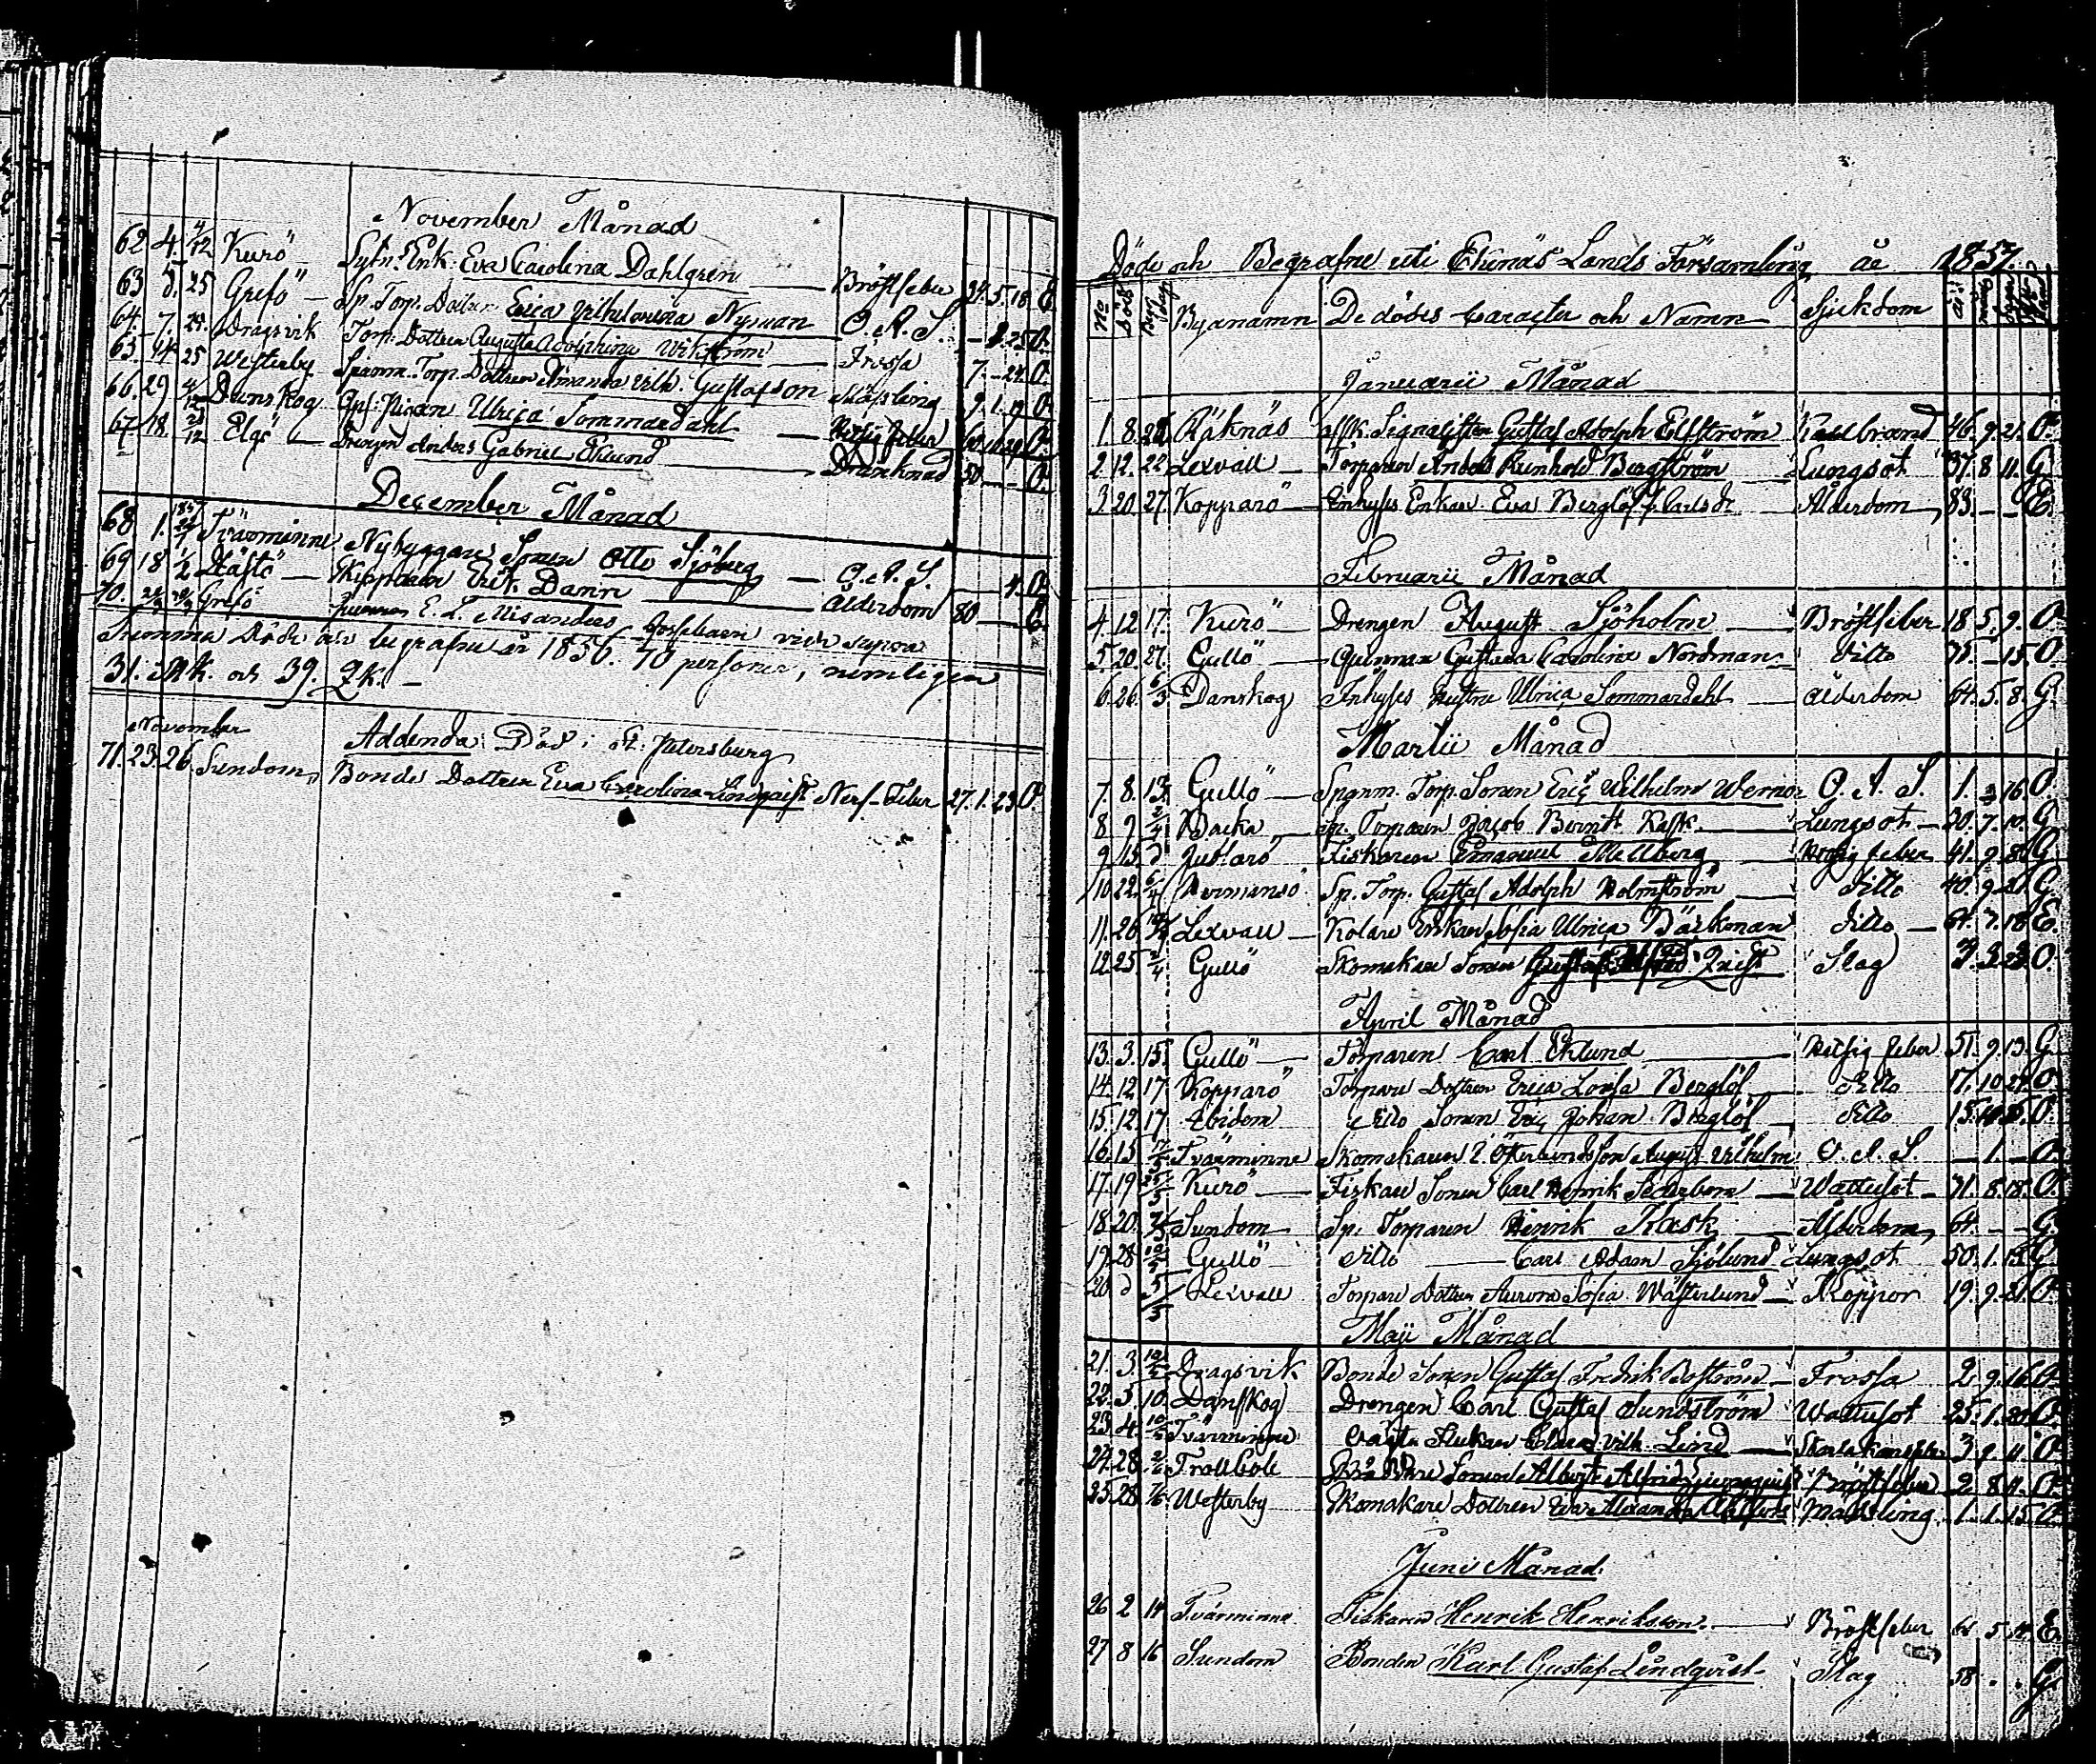 November Månad
62. 4. 4/12 Kurö Sytn. Enk. Eva Carolina Dahlgren Bröstfeber 5. 18. E.
63 5. 25 Grefö Sp. Torp. Dotter Erica Vilhelmina Nyman O. A. S. O.
64. 7. 25. Dragsvik Torp. Dottren Augusta Adolphina Wikström Frossa 7. - 24. O.
65. 14. 25 Westerby Spanm. Torp. Dottren Amanda Vilh. Gustafson Mässling 9. 1. 19. O.
66. 29 4/12 Danskog Pigan Ulrica Sommardahl Hetsig feber O.
67. 18. Elgö Drengen Anders Gabriel Eklund Dränknad 50 - - O.
December Månad
68 1. 1857 Tvärminne Nybyggares Sonen Otto Sjöberg O. A. S. 4. O.
69 18 1/2 Skäftö Skepparen Erik Dann Ålderdom 80 - - E.
70. Grefö E. L. Gossebarn
Summa Döde och begrafne år 1856. 70 personer, nemligen
31. M.K. och 39. Q.K. -
November Addenda: Död i St. Petersburg
71. 23. 26. Sundom Bonde Dottren Eva Carolina Lindqvist Nerf-Feber 27. 1. 23. O.
Döde och Begrafne uti Ekenäs Lands Församling år 1857.
No Död Byanamn De dödes Caracter och Namn Sjukdom
Januarii Månad
1. 8. Räknäs Signalisten Gustaf Adolph Elfström Kallbrand 46. 9. 21. O.
2. 12. 22 Lexvall Torparen Anders Reinhold Bergström Lungsot 37. 8. 11. G.
3. 20. 27. Kopparö Enhyses Enkan Eva Berglöf f. Carlsdr Ålderdom 83. - - E.
Februarii Månad
4. 12 17. Kurö Drengen August Sjöholm Bröstfeber 18. 5. 9. O.
5. 20. 27. Gullö Qvinnan Gustava Carolina Nordman Ditto 75. - 15. O.
6. 26. 6/3 Danskog Inhyses Hustru Ulrica Sommardahl Ålderdom 64. 5. 8. G.
Martii Månad
7. 8. 13. Gullö Spanm. Torp. Sonen Eric Wilhelm Werner O. A. S. 1. 16. O.
8. 9 2/4 Backa Sp. Torparen Jacob Berndt Kask Lungsot 30. 7. 10. G.
9. 15. d Jussarö Fiskaren Emanuel Mellberg Hetsig feber 41. 9. 8. G.
10. 22. Hermansö Sp. Torp. Gustaf Adolph Holmström Ditto 40. 9. G.
11. 26. Lexvall Kolare Enkan Sofia Ulrica Bärkman Ditto 7. 18. E.
12. 25. 2/4 Gullö Skomakare Sonen Gustaf Alfred Qvist Slag O.
April Månad
13. 3. 15. Gullö Torparen Carl Eklund Hetsig feber 51. 9. 13. G.
14. 12. 17 Kopparö Torpare Dottren Erica Lovisa Berglöf Ditto 17. 10. O.
15. 12. 17 Ebidem Ditto Sonen Eric Johan Berglöf Ditto O.
16. 15. Tvärminne Skomakaren Österlunds Son August Wilhelm O. A. S. - 1. - O.
17. 19 Kurö Fiskare Sonen Carl Henrik Söderbom Wattusot 8. 18. O.
18. 20. Sundom Sp. Torparen Henrik Kask Ålderdom 64. - - G.
19. 28 10/5 Gullö Ditto Carl Adam Sjölund Lungsot 50. 1. 13. G.
20. d 5/5 Lexvall Torpare Dottren Aurora Sofia Wästerlund Koppor 19. 9. 21. O.
Maji Månad
21. 3. Dragsvik Bonde Sonen Gustaf Fredrik Boström Frossa 2. 9. 16. O.
22. 5. 10. Danskog Drengen Carl Gustaf Sundström Wattusot 25. 1. O.
23. 4. Tvärminne Clara Vilh. Lind 3. 9. 11. O.
24. 28. Trollböle Sonen Albert Alfrid Bröstfeber 2. 8. 11. O.
25. 28. Westerby Skomakare Dottren Eva Alexandra Ahlfors Mässling 1. 1. 15. O.
Juni Månad.
26 2 14 Tvärminne Fiskaren Henrik Henriksson. Bröstfeber 5. E.
27 8 16 Sundom Bonden Karl Gustaf Lindqvist Slag 58. . . G.